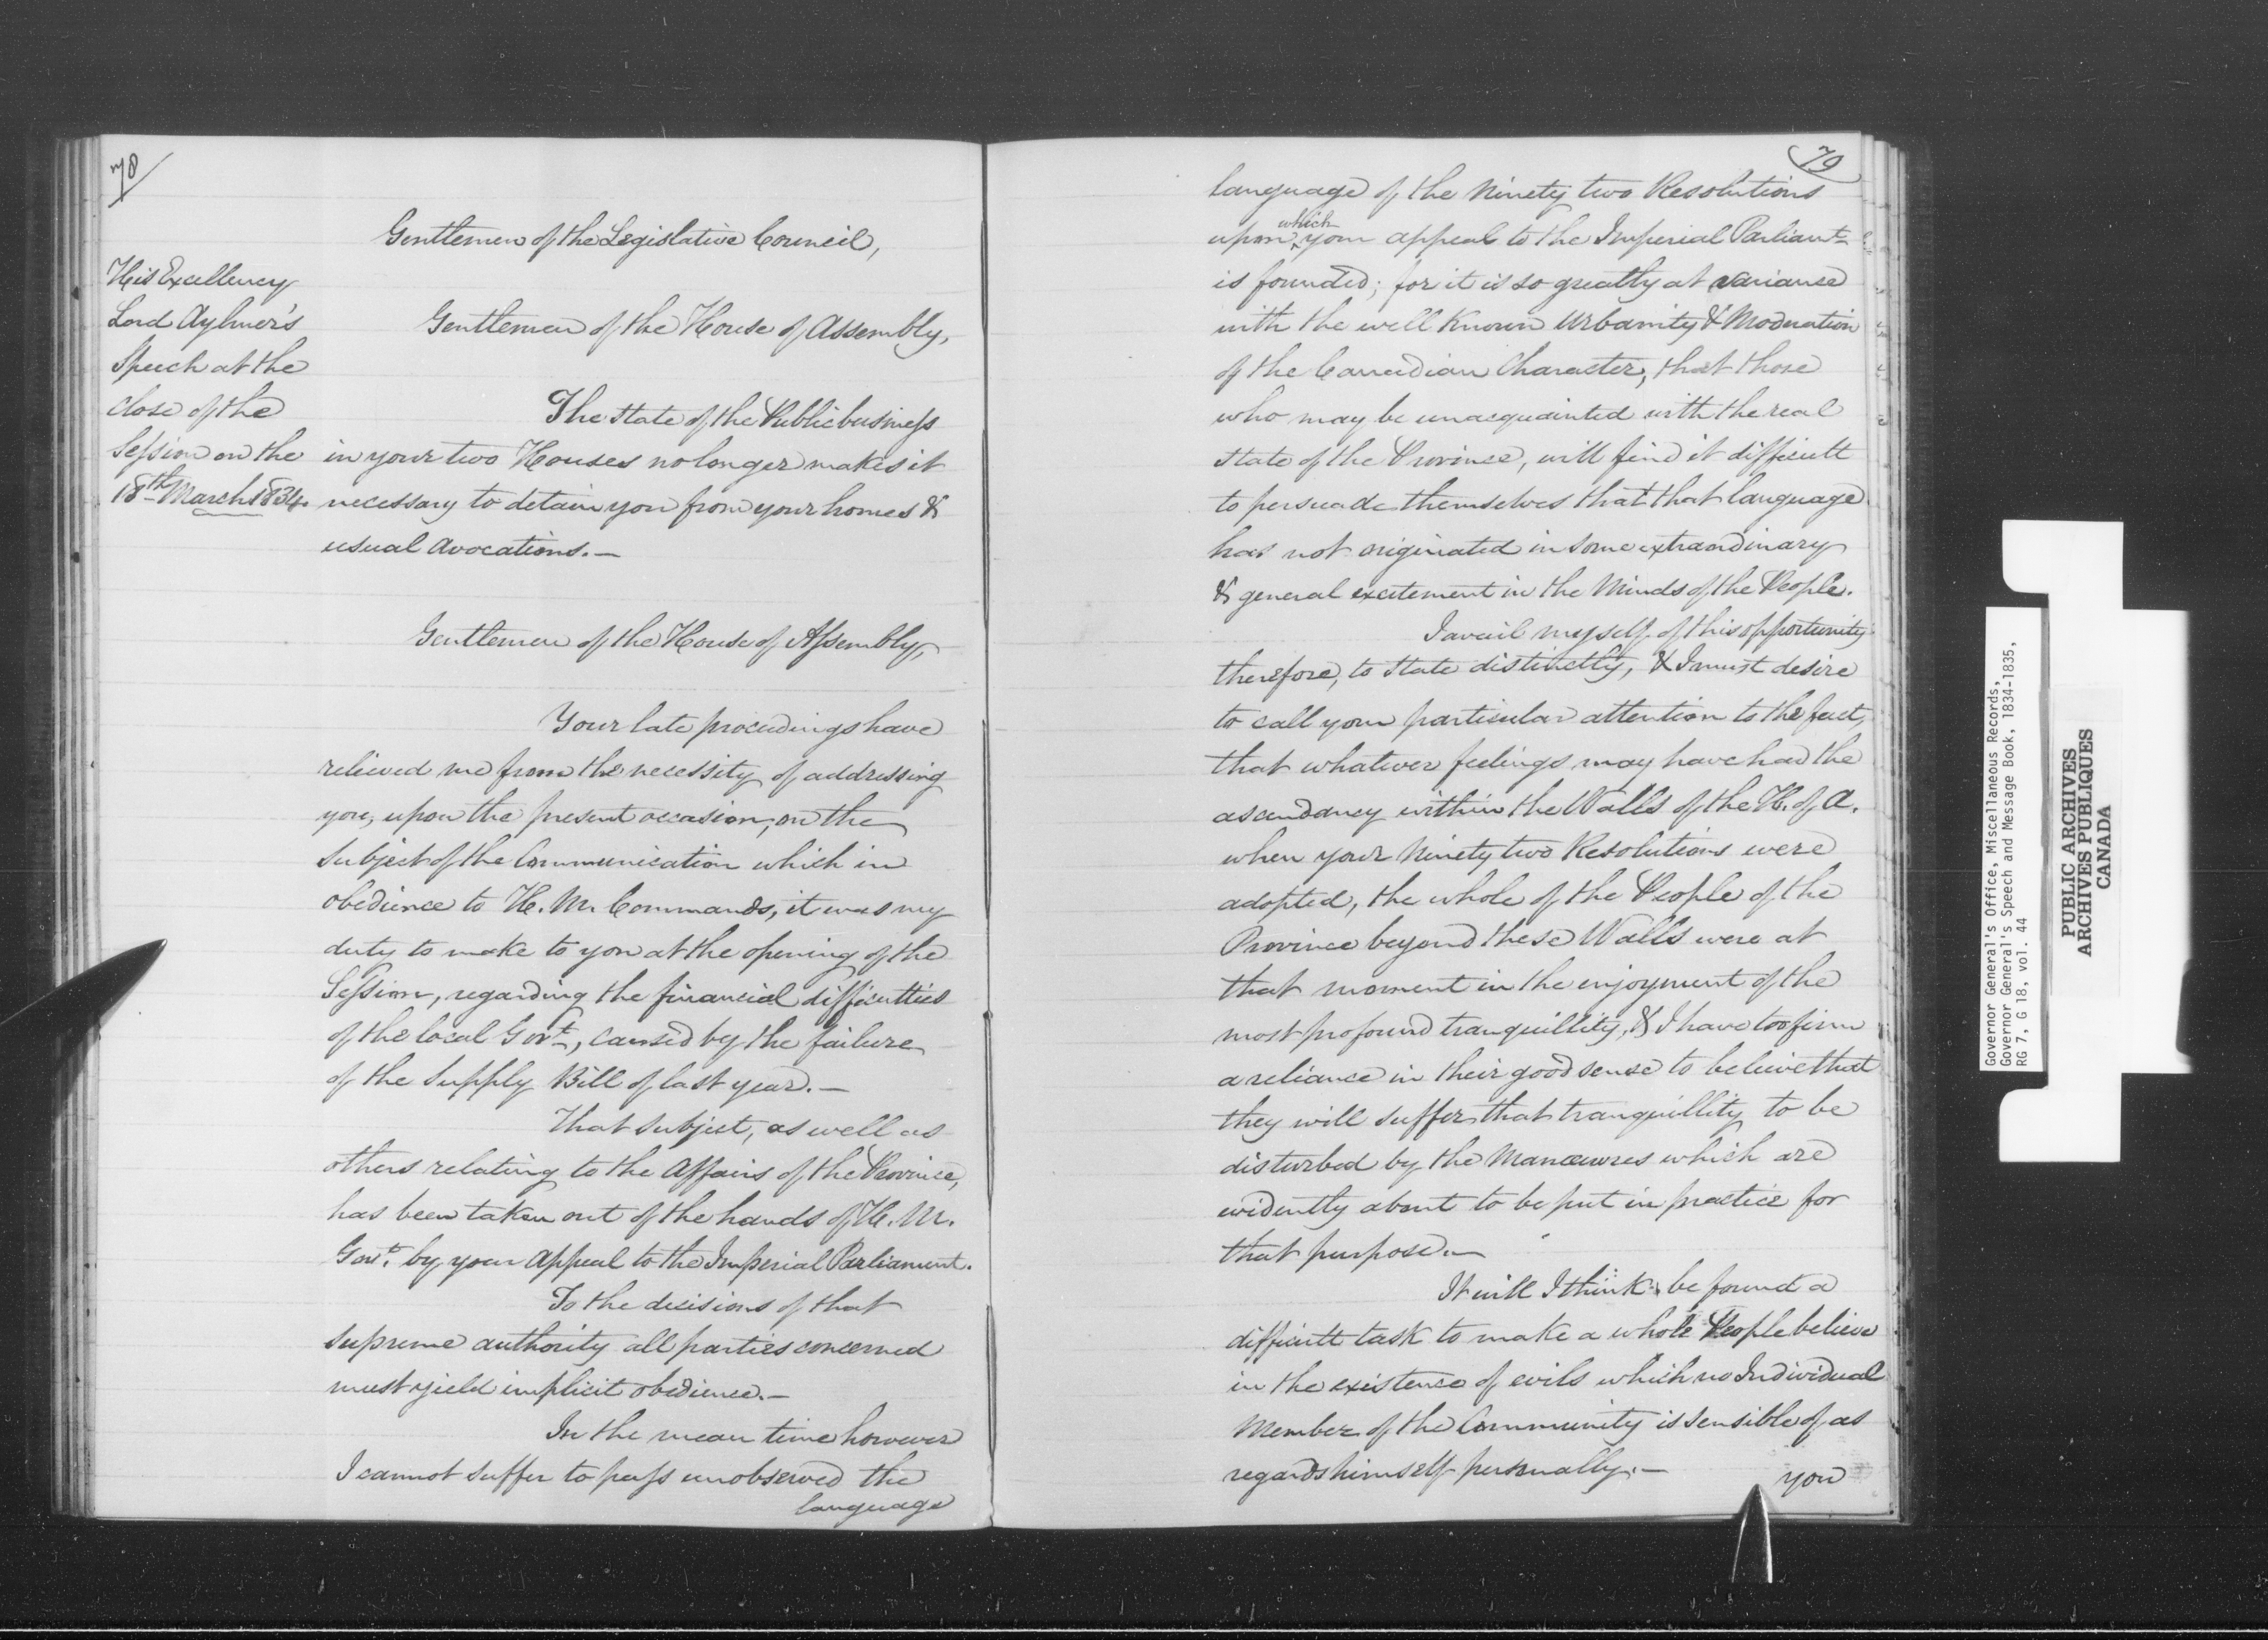 78
Gentlemen of the Legislative Council,
His Excellency
Lord Aylmer's
Speech at the
close of the
Session on the
18th March 1834.
Gentlemen of the House of Assembly,
The State of the Public business
in your two Houses no longer makes it
necessary to detain you from your homes &
usual avocations.—
Gentlemen of the House of Assembly,
Your late proceedings have
relieved me from the necessity of addressing
you, upon the present occasion, on the
subject of the Communication which in
obedience to H. M. Commands, it was my
duty to make to you at the opening of the
Session, regarding the financial difficulties
of the local Govt, caused by the failure
of the Supply Bill of last year.—
That subject, as well as
others relating to the Affairs of the Province,
has been taken out of the hands of H. M.
Govt. by your appeal to the Imperial Parliament.
To the decisions of that
supreme authority all parties concerned
must yield implicit obedience.—
In the mean time however
I cannot suffer to pass unobserved the
language
79
language of the Ninety two Resolutions
upon which your appeal to the Imperial Parliamt
is founded; for it is so greatly at varianse
with the well known Urbanity & Moderation
of the Canadian Character, that those
who may be unacquainted with the real
state of the Province, will find it difficult
to persuade themselves that that language
has not originated in some extraordinary
& general excitement in the Minds of the People.
I avail myself of this opportunity
therefore, to state distinctly, & I must desire
to call your particular attention to the fact,
that whatever feelings may have had the
ascendancy within the Walls of the H. of A.
when your Ninety two Resolutions were
adopted, the whole of the People of the
Province beyond these Walls were at
that moment in the enjoyment of the
most profound tranquillity, & I have too firm
a reliance in their good sense to believe that
they will suffer that tranquillity to be
disturbed by the Manœuvres which are
evidently about to be put in practice for
that purpose.—
It will I think be found a
difficult task to make a whole People believe
in the existence of evils which no Individual
Member of the Community is sensible of as
regards himself personally.—
you
Governor General's Office, Miscellaneous Records,
Governor General's Speech and Message Book, 1834-1835,
RG 7, G 18, vol. 44
PUBLIC ARCHIVES
ARCHIVES PUBLIQUES
CANADA